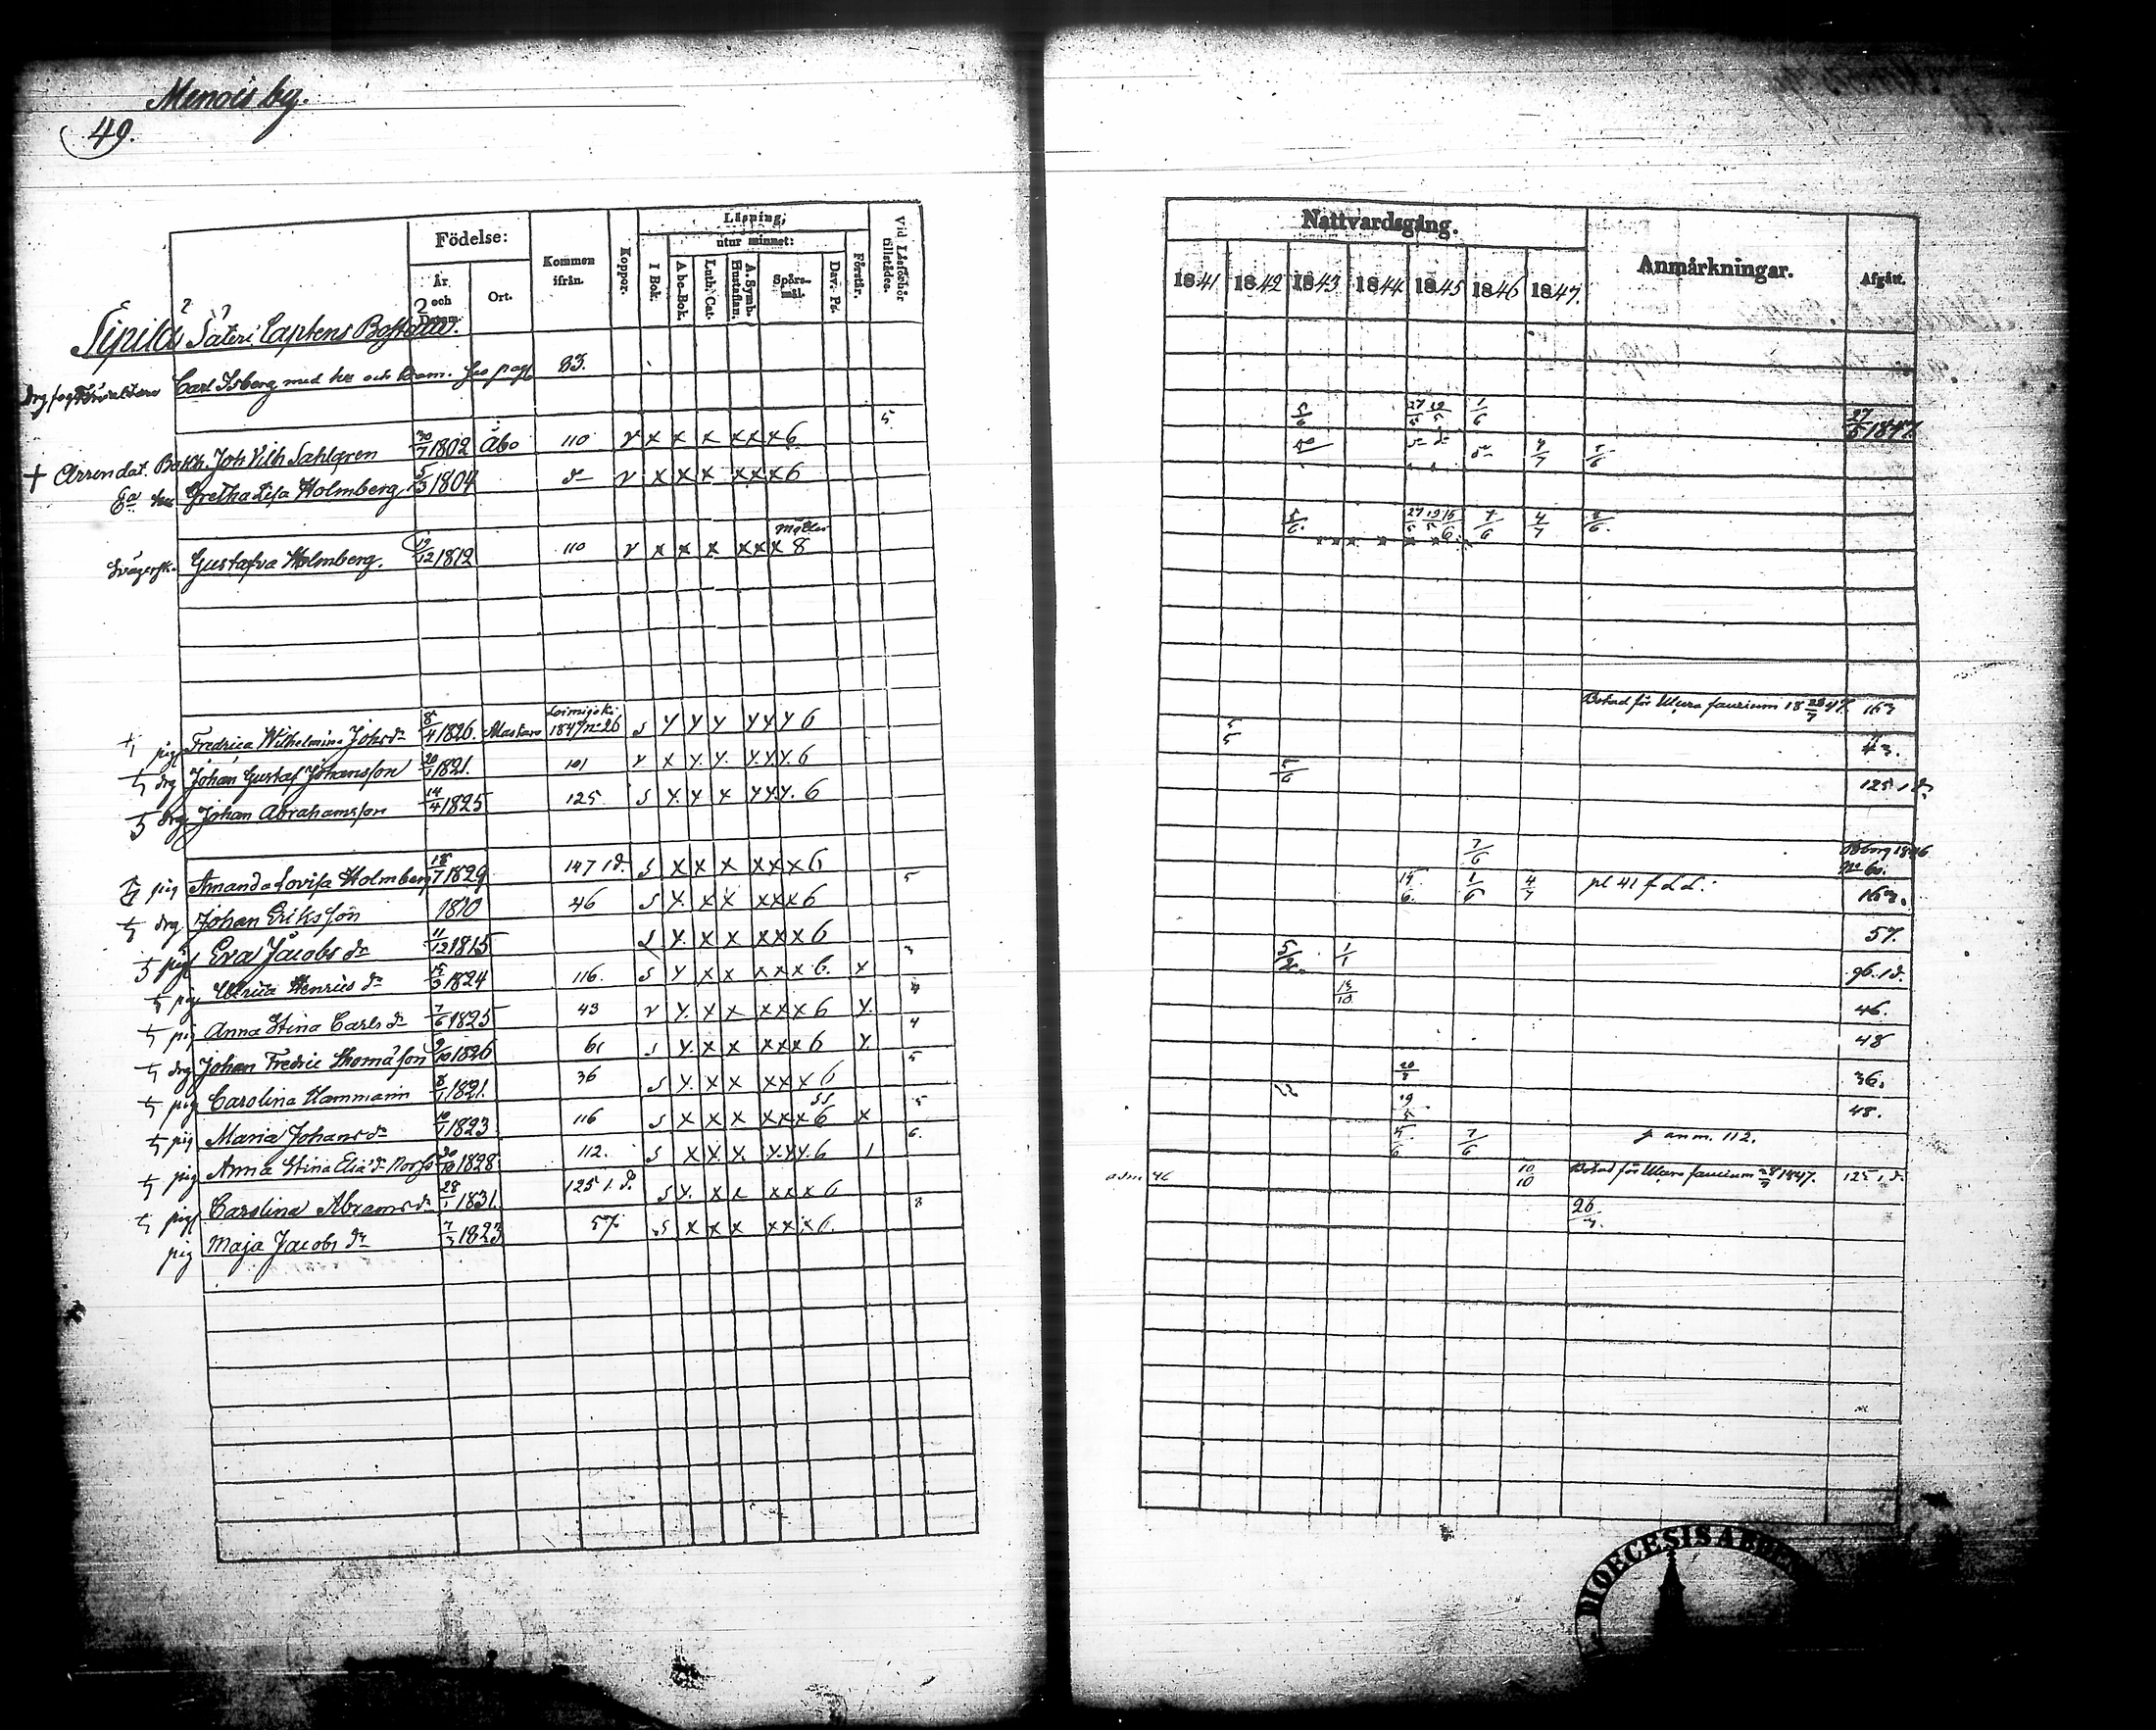 Menois by.
49.
Födelse:
År och Datum
Ort.
Kommen ifrån.
Koppor.
Läsning,
utur minnet:
I Bok.
Abc-Bok.
Luth. Cat.
A. Symb. Hustaflan.
Spörs-mål.
Dav. Ps.
Förstår.
Vid Läsförhör tillstädes.
Sipilä Säteri Captens Boställe.
Carl Isberg med hu och barn. Se pag 83.
+ Arrendat. Bokh. Joh Vilh Sahlgren 30/7 1802 Åbo 110 v x x x x x x 6 5
Ea hu Gretha Lisa Holmberg 5/3 1804 d- v x x x x x x 6
Svägersk. Gustafva Holmberg. 19/12 1812 110 v x x x x x x 8
pig Fredrica Wilhelmina Johs dr 8/4 1826. Loimijoki 1847 no 26 s y y y y y y 6
drg Johan Gustaf Johansson 20/1 1821. 101 v x y. y. y. y. y. 6
drg Johan Abrahamsson 14/4 1825 125 s y. y x y y y. 6
pig Amanda Lovisa Holmberg 18/7 1829 147 1d. s x x x x x x 6
drg Johan Eriksson 1810 46 s y. x x x x x 6 5
pig Eva Jacobs dr 11/12 1815 s y. x x x x x 6
pig Ulrica Henrics dr 15/3 1824 116. s y x x x x x 6. x 3
pig Anna Stina Carls dr 7/6 1825 43 v y. x x x x x 6 y.
drg Johan Fredric Thomasson 9/10 1826 61 s y. x x x x x 6 y. 4
pig Carolina Hammarin 8/1 1821. 36 s y. x x x x x 6 5
pig Maria Johans dr 10/1 1823 116 s x x x x x x 6 x 5
pig Anna Stina Elia dr 30/10 1828 112. s x x x. y. y. y. 6 1 6.
pig Carolina Abrams dr 28/1 1831. 125 1. d. s y. x x x x x 6
pig Maja Jacobs dr 7/3 1823 57. s x x x x x x 6. 8
Nattvardsgång.
1841 1842 1843 1844 1845 1846 1847.
Anmärkningar.
Afgått.
5/6 27/5 19/5 1/6 27/5 1847.
4/7
5/6. 27/5 19/5 15/6. 7/6 4/7
Botad för Ulcera faucium 18 28/7 47. 163
5/5 43.
5/6 125 1 d.
7/6 Åborg 1846 No 60.
15/6. 1/6 4/7 pl 41 163.
57.
5/2. 1/1 96. 1d.
13/10 46.
48
20/3 36.
19/5 48.
5/6 7/6 anm. 112.
adm 46 10/10 Botad för Ulcera faucium 28/7 1847. 125 1 d.
26/3.
DIOECESIS ABOEN